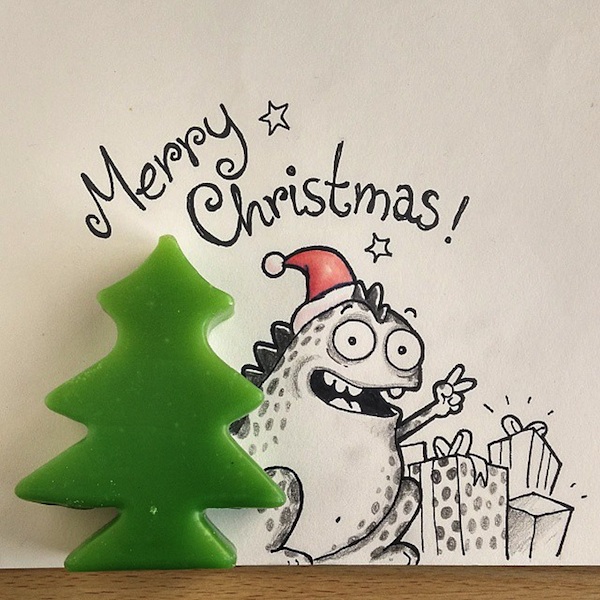 Merry
Christmas!